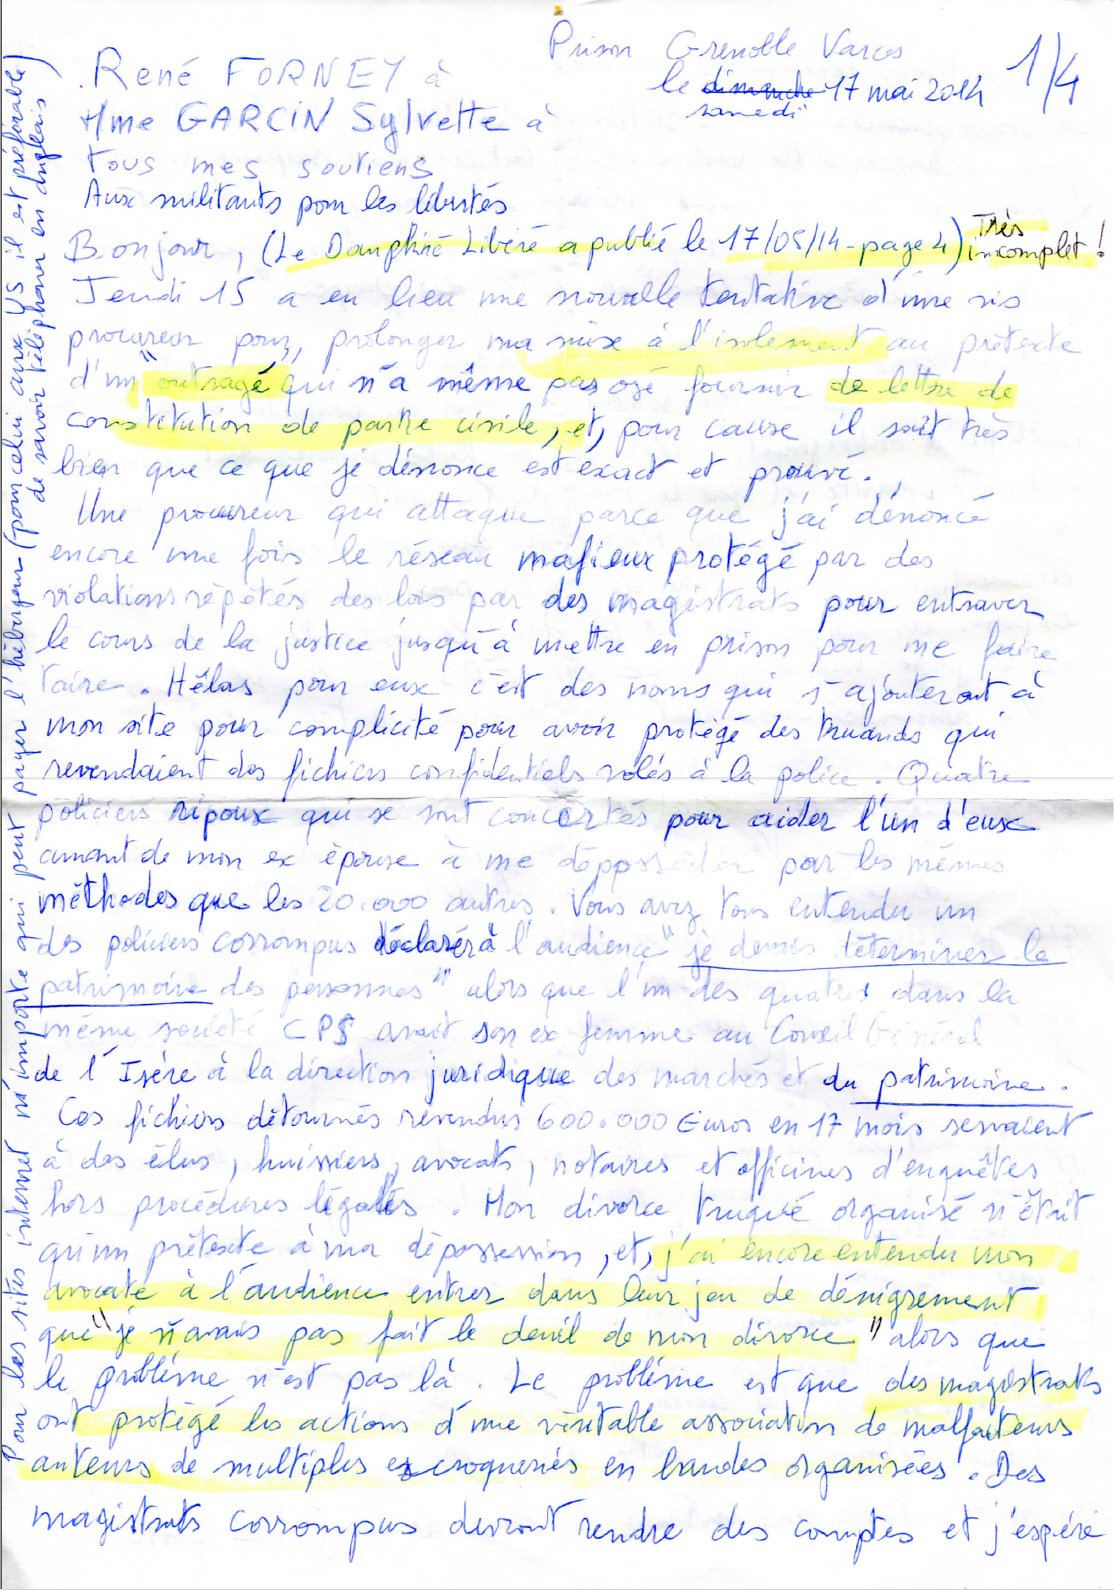 Prison Grenoble Varces
1/4
René FORNEY à
le dimanche 17 mai 2014
samedi
Mme GARCIN Sylvette à
tous mes soutiens
Aux militants pour les libertés
Bonjour, (Le Dauphiné Libéré a publié le 17/05/14 - page 4) Très incomplet !
Jeudi 15 a eu lieu une nouvelle tentative d'une vis
procureur pour, prolonger ma mise à l'isolement au prétexte
d'un "outragé" qui n'a même pas osé fournir de lettre de
constitution de partie civile, et, pour cause il sait très
bien que ce que je dénonce est exact et prouvé.
Une procureur qui attaque parce que j'ai dénoncé
encore une fois le réseau mafieux protégé par des
violations répétés des lois par des magistrats pour entraver
le cours de la justice jusqu'à mettre en prison pour me faire
taire. Hélas pour eux c'est des noms qui s'ajouteront à
mon site pour complicité pour avoir protégé des truands qui
revendaient des fichiers confidentiels volés à la police. Quatre
policiers ripoux qui se sont concertés pour aider l'un d'eux
amant de mon ex épouse à me dépposséder par les mêmes
méthodes que les 20.000 autres. Vous avez tous entendu un
des policiers corrompus déclarer à l'audience "je devais déterminer le
patrimoine des personnes" alors que l'un des quatres dans la
même société CPS avait son ex femme au Conseil Général
de l'Isère à la direction juridique des marchés et du patrimoine.
Ces fichiers détournés revendus 600.000 Euros en 17 mois servaient
à des élus, huissiers, avocats, notaires et officines d'enquêtes
hors procédures légales. Mon divorce truqué organisé n'était
qu'un prétexte à ma dépossession, et, j'ai encore entendu mon
avocate à l'audience entrer dans leur jeu de dénigrement
que "je n'avais pas fait le deuil de mon divorce" alors que
le problème n'est pas là. Le problème est que des magistrats
ont protégé les actions d'une véritable association de malfaiteurs
auteurs de multiples escroqueries en bandes organisées. Des
magistrats corrompus devront rendre des comptes et j'espère
Pour les sites internet n'importe qui peut payer l'hébergeur (pour celui aux US il est préférable
de savoir téléphoner en anglais)